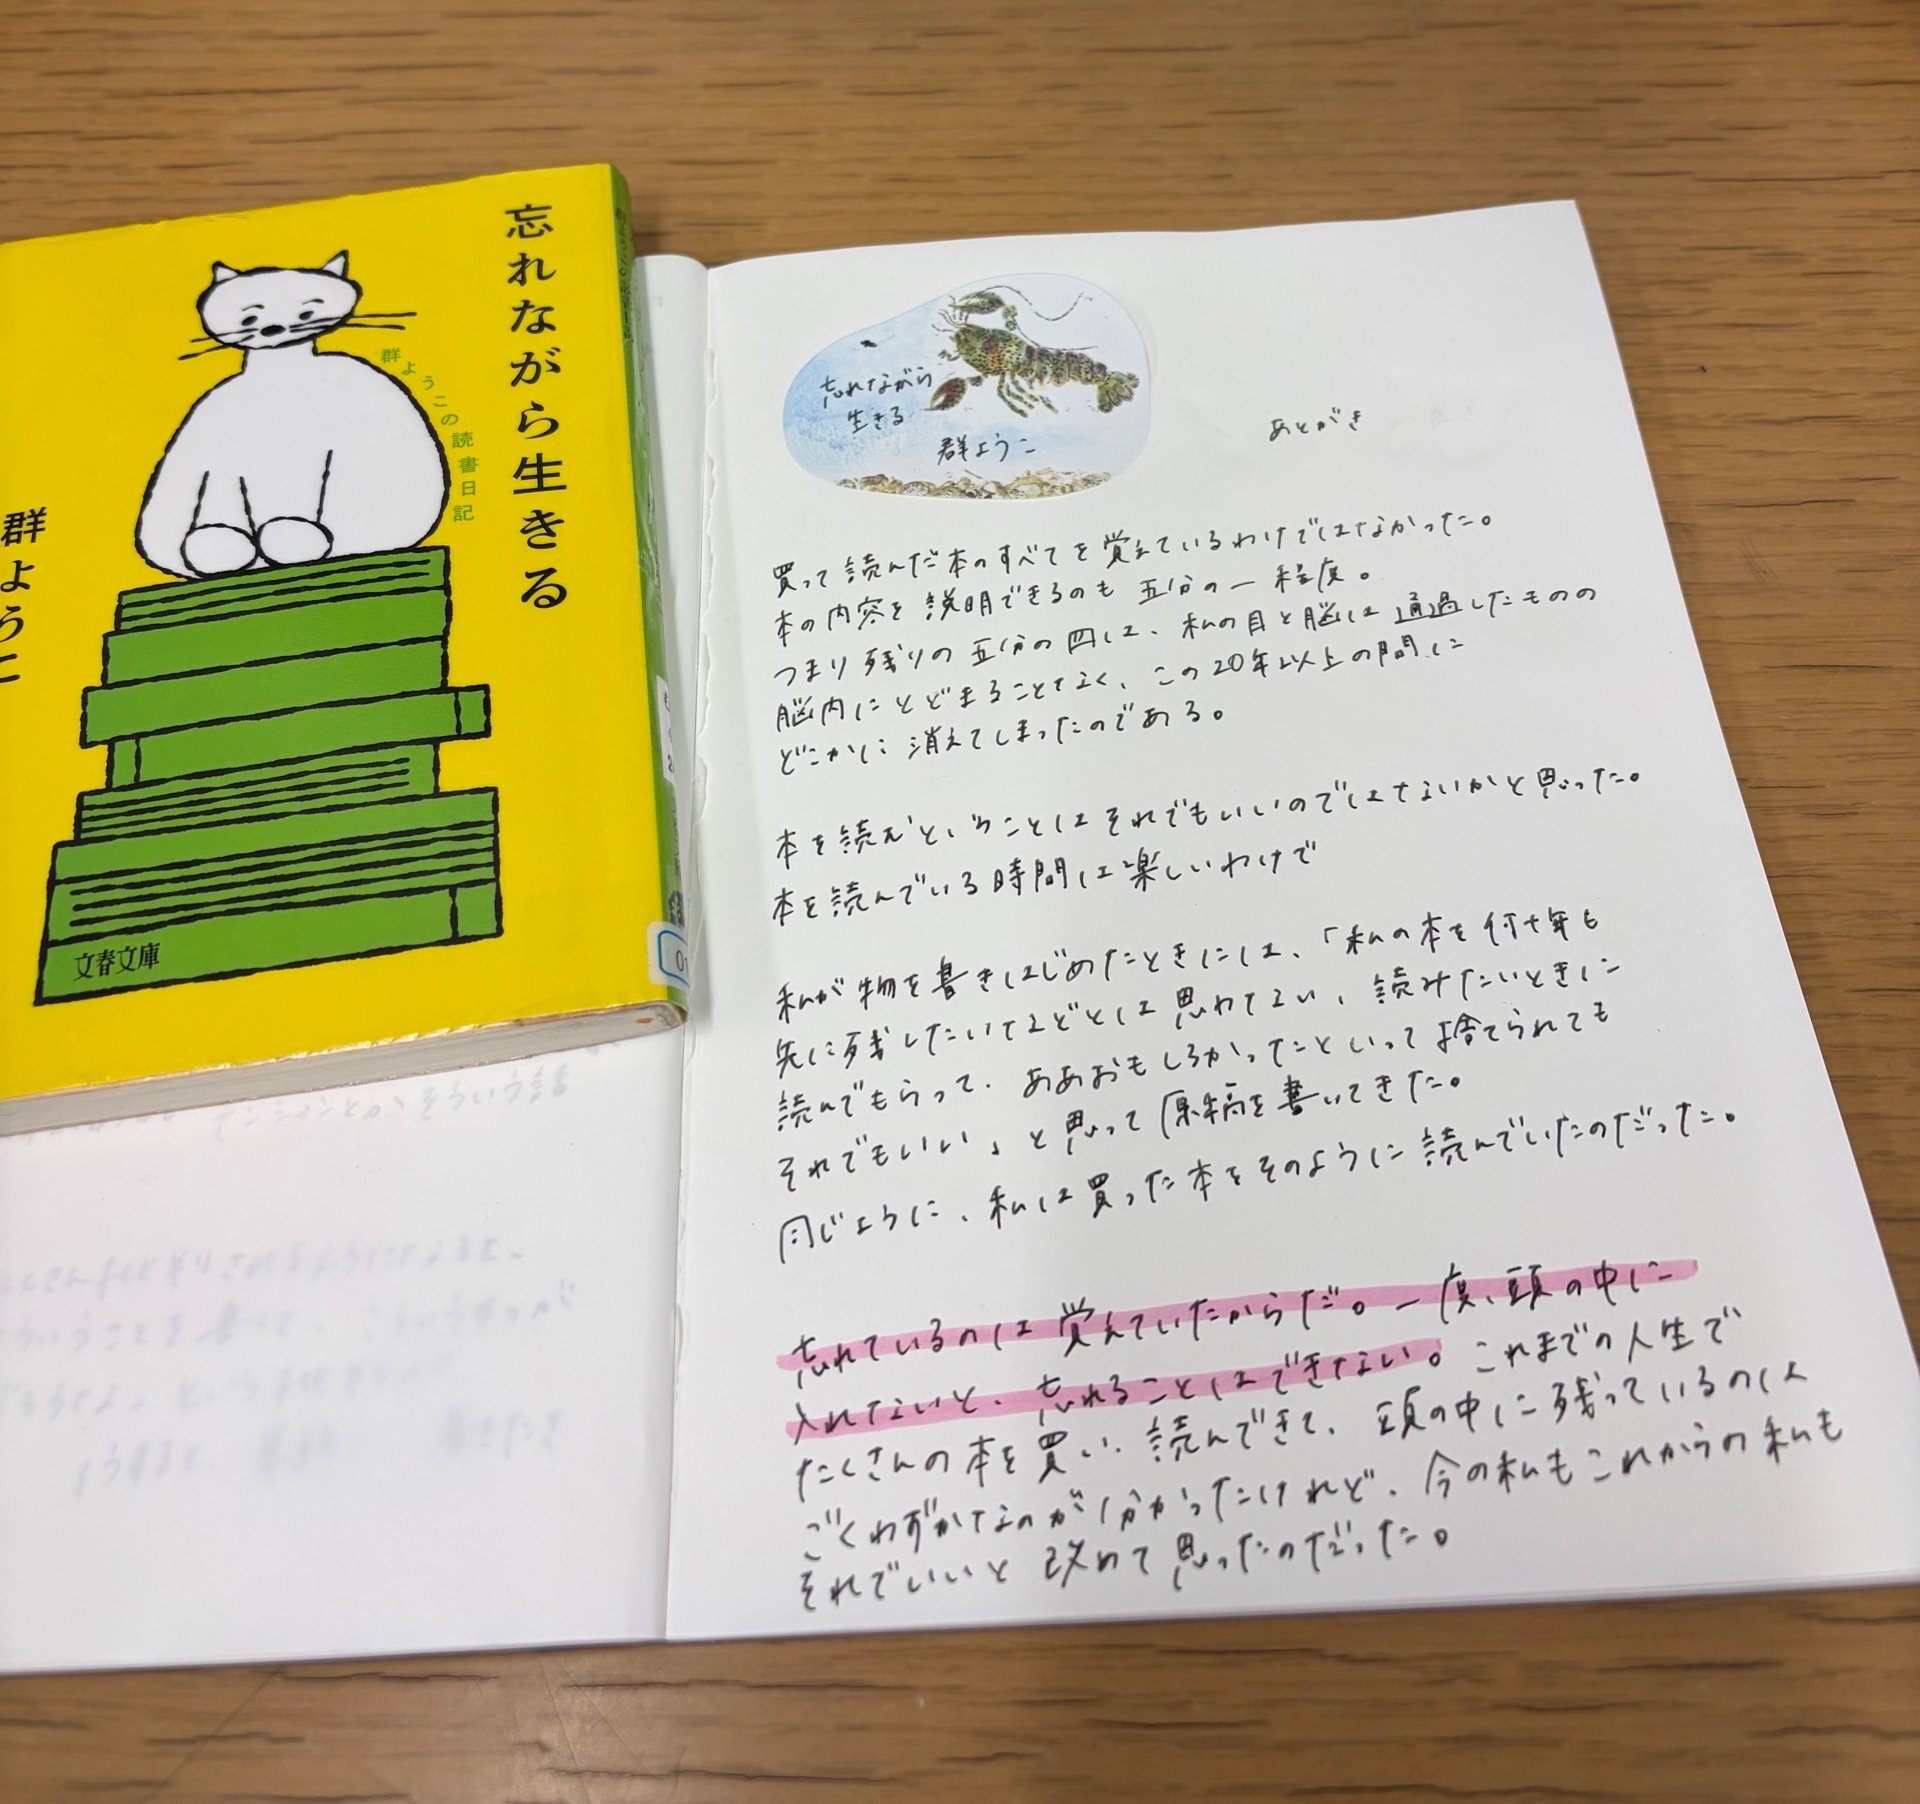 忘れながら生きる
群ようこの読書日記
群ようこ
文春文庫
忘れながら
生きる
群ようこ
あとがき
買って読んだ本のすべてを覚えているわけではなかった。
本の内容を説明できるのも五分の一程度。
つまり残りの五分の四は、私の目と脳は通過したものの
脳内にとどまることなく、この20年以上の間に
どこかに消えてしまったのである。
本を読むということはそれでもいいのではないかと思った。
本を読んでいる時間は楽しいわけで
私が物を書きはじめたときには、「私の本を何十年も
先に残したいなどとは思わない、読みたいときに
読んでもらって、ああおもしろかったといって捨てられても
それでもいい」と思って原稿を書いてきた。
同じように、私は買った本をそのように読んでいたのだった。
忘れているのは覚えていたからだ。一度、頭の中に
入れないと、忘れることはできない。これまでの人生で
たくさんの本を買い、読んできて、頭の中に残っているのは
ごくわずかなのが分かったけれど、今の私もこれからの私も
それでいいと改めて思ったのだった。